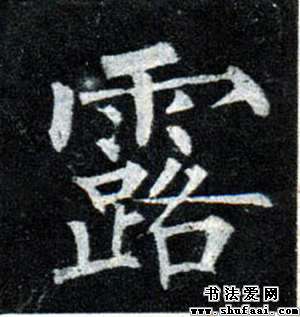 露
书法爱网
www.shufaai.com